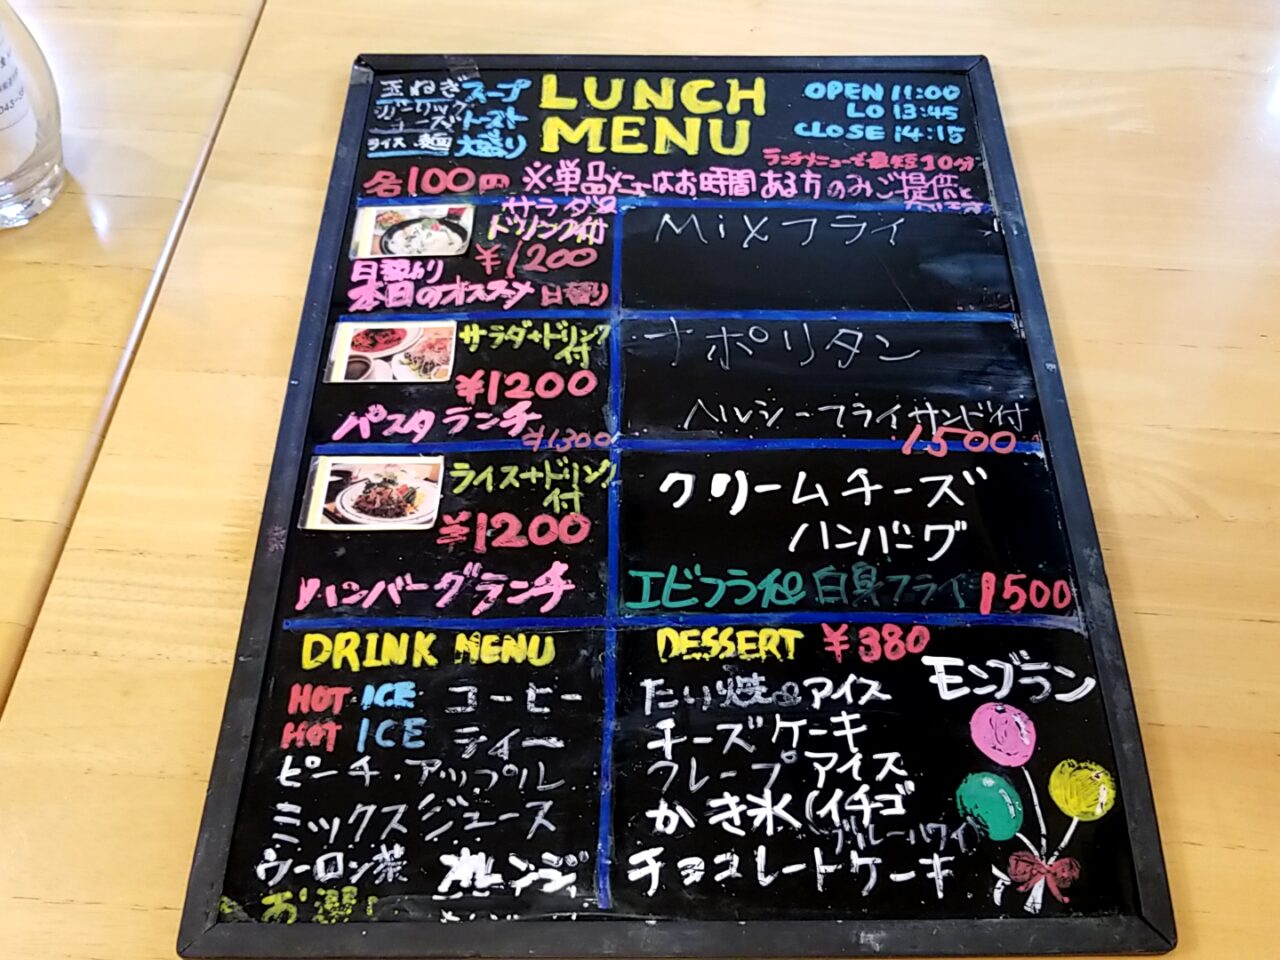 玉ねぎスープ
ガーリックチーズトースト
ライス 麺 大盛り
各100円
LUNCH
MENU
OPEN 11:00
LO 13:45
CLOSE 14:15
ランチメニューで最短30分
※単品メニューはお時間ある方のみご提供と
サラダ
ドリンク付
¥1200
日替り
本日のオススメ 日替り
Mixフライ
サラダ+ドリンク
付
¥1200
パスタランチ
¥1300
ナポリタン
ヘルシーフライサンド付
1500
ライス+ドリンク
付
¥1200
ハンバーグランチ
クリームチーズ
ハンバーグ
エビフライ 白身フライ 1500
DRINK MENU
HOT ICE コーヒー
HOT ICE ティー
ピーチ・アップル
ミックスジュース
ウーロン茶 オレンジ
お選
DESSERT ¥380
たい焼 アイス
モンブラン
チーズケーキ
クレープアイス
かき氷(イチゴ
ブルーハワイ)
チョコレートケーキ